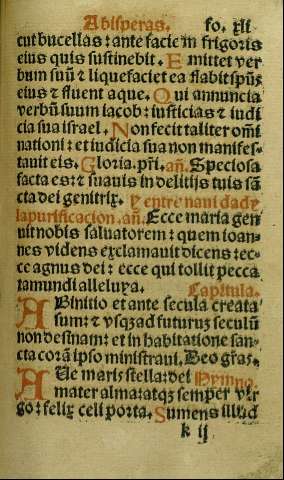 A bisperas. fo. xli
cut bucellas: ante faciem frigoris
eius quis sustinebit. Emittet ver
bum suū ⁊ liquefaciet ea flabit spūs
eius ⁊ fluent aque. Qui annuncia
verbū suum iacob: iusticias ⁊ iudi
cia sua israel. Non fecit taliter om̄i
nationi: et iudicia sua non manifes-
tauit eis. Gloria. pr̄i. añ. Speciosa
facta es: ⁊ suauis in delitijs tuis sā
cta dei genitrix. y entre nauidad y
la purificacion. añ. Ecce maria gen
uit nobis saluatorem: quem ioan-
nes videns exclamauit dicens: ec-
ce agnus dei: ecce qui tollit pecca
ta mundi alleluya. Capitula.
AB initio et ante secula creata
sum: ⁊ vsqzad futuruz seculū
non desinam: et in habitatione san-
cta corā ipso ministraui. Deo gras.
AUe maris stella: dei Hymno.
mater alma: atqz semper vir
go: felix celi porta. Sumens illud
k ij